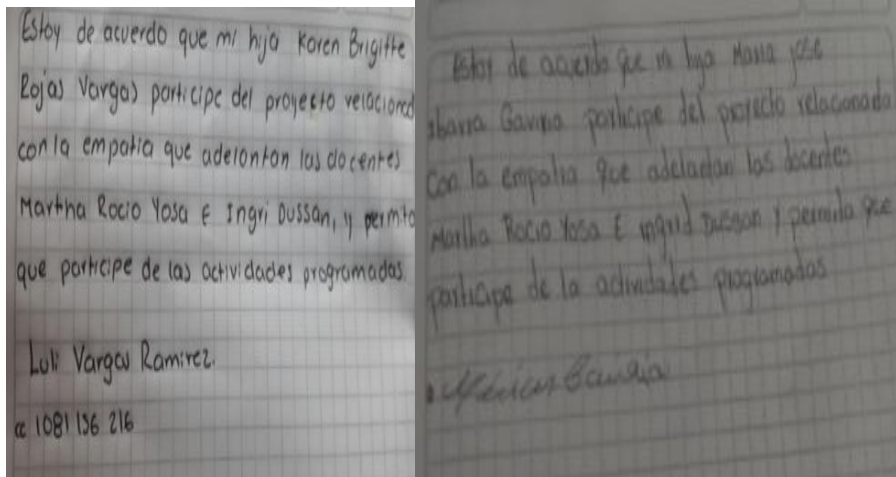 Estoy de acuerdo que mi hija Karen Brigitte
Rojas Vargas participe del proyecto relacionad
con la empatia que adelantan las docentes
Martha Rocio Yosa E Ingri Dussan, y permito
que participe de las actividades programadas
Luli Vargas Ramirez.
cc 1081 156 216
Estoy de acuerdo que mi hija Maria jose
ibarra Gaviria participe del proyecto relacionada
con la empatia que adelantan las docentes
Martha Rocio Yosa E ingrid Dussan y permito que
participe de la actividades programadas
Gaviria